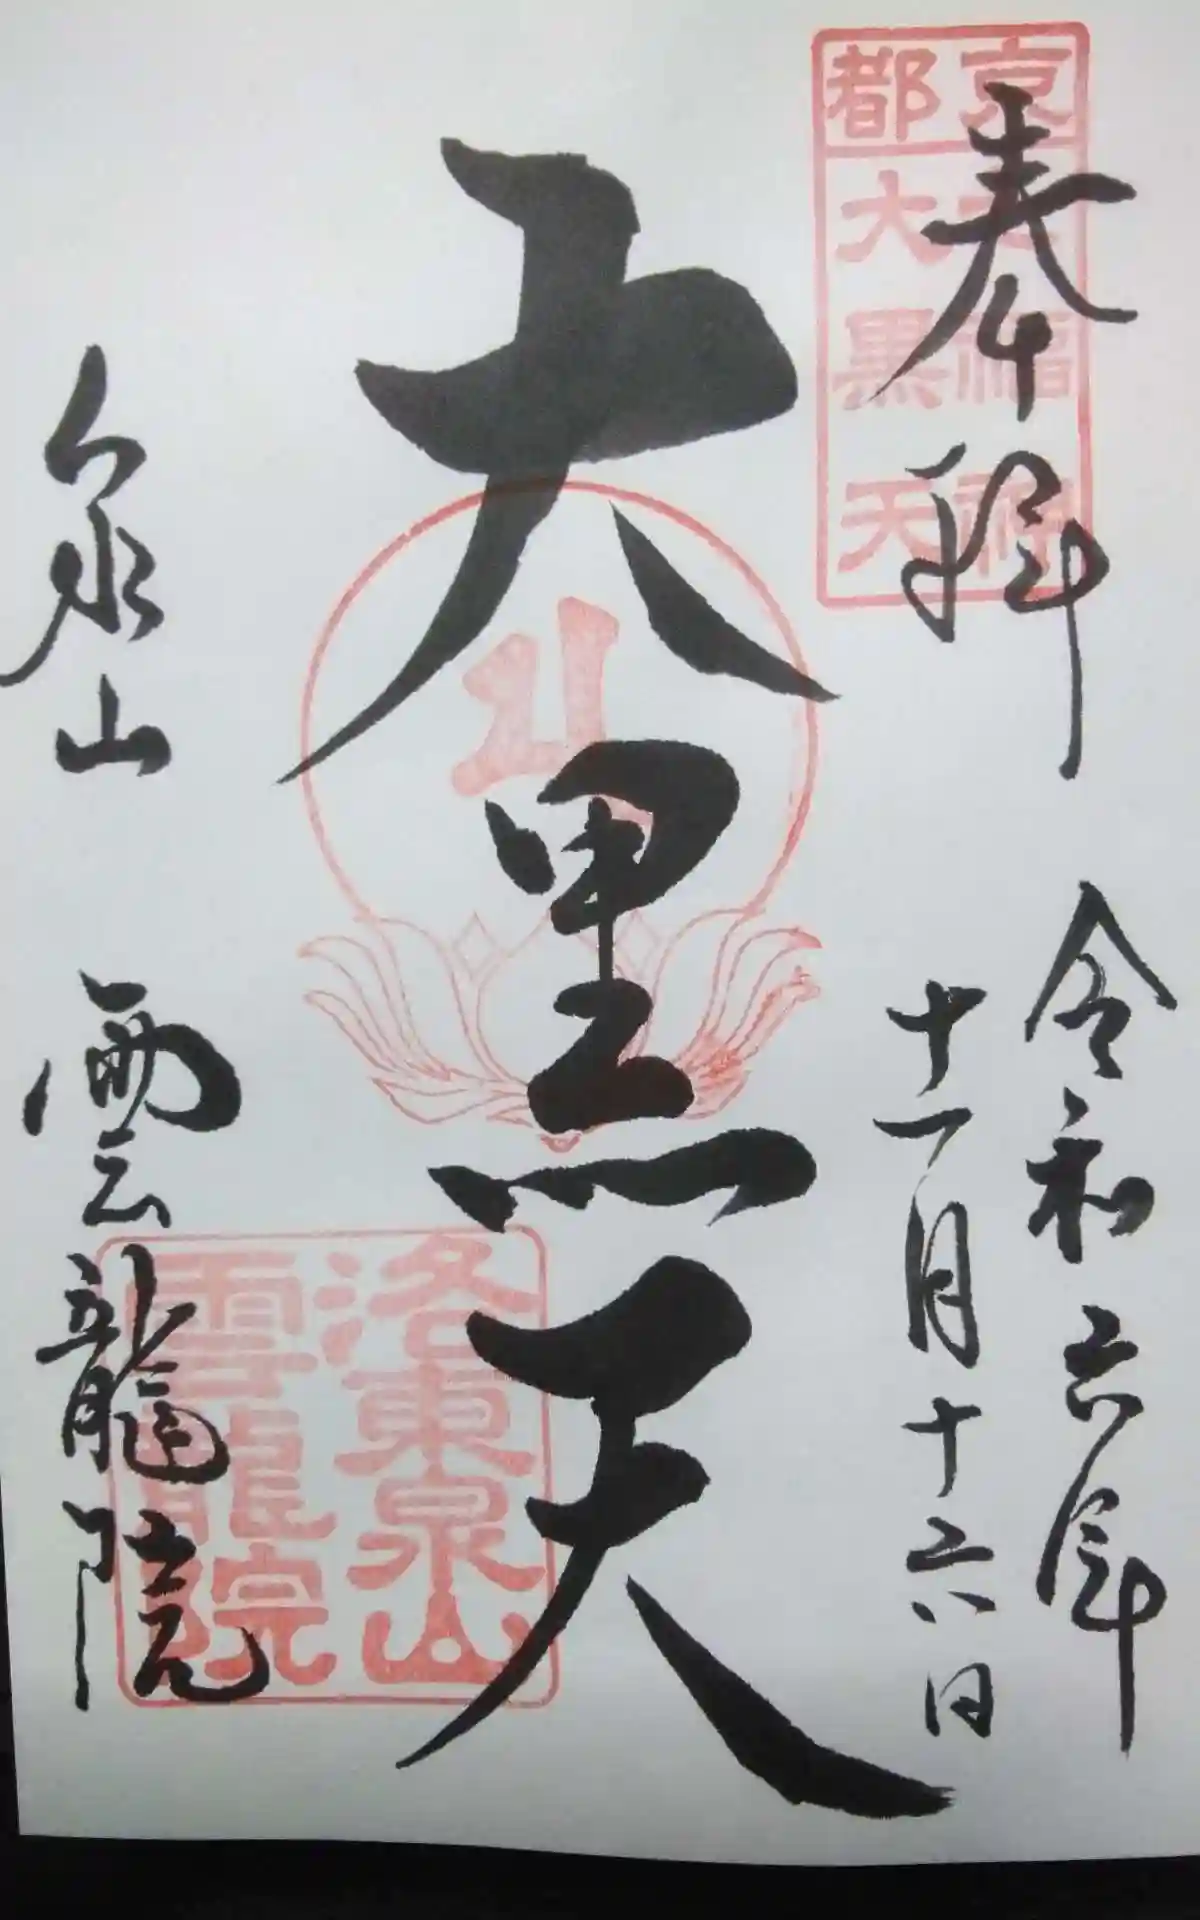 奉拝
令和六年
十一月十六日
大黒天
泉山 雲龍院
京都
七福神
大黒天
洛東泉山
雲龍院